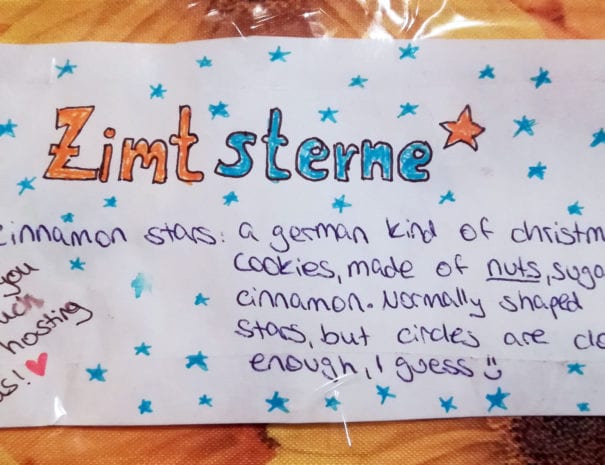 Zimtsterne
cinnamon stars: a german kind of christm
cookies, made of nuts, suga
cinnamon. Normally shaped
stars, but circles are clo
enough, I guess
you
uch
hosting
us!